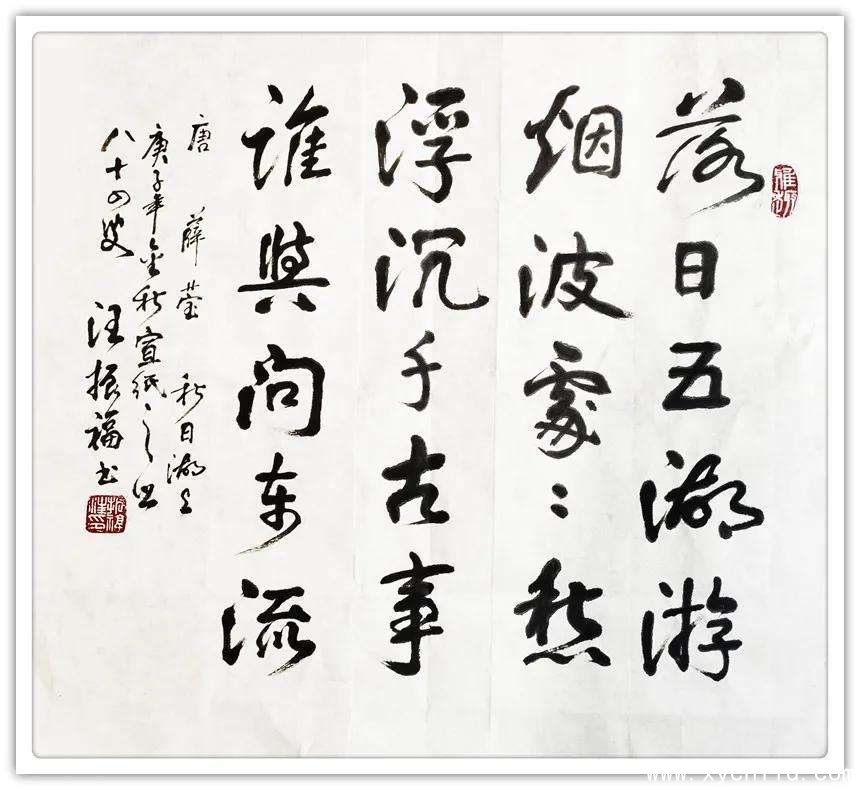 落日五湖游
烟波處處愁
浮沉千古事
誰與问东流
唐 薛莹 秋日湖上
庚子年金秋宣紙之
八十四叟 汪振福书